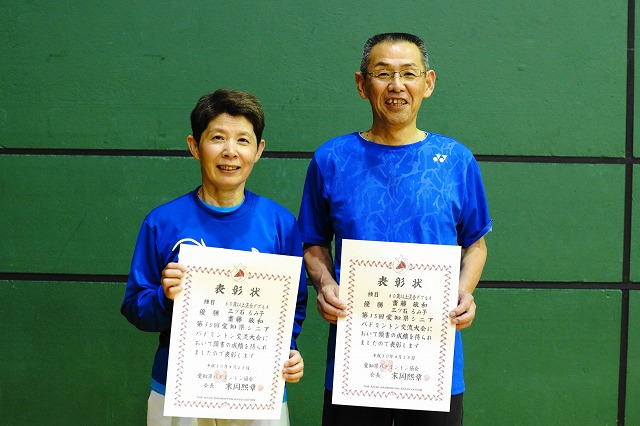 表彰状
種目 60歳以上混合ダブルス
優勝 三ツ石るみ子
齋藤敏和
第35回愛知県シニア
バドミントン交流大会に
おいて頭書の成績を得られ
ましたので表彰します
愛知県バドミントン協会
会長 末岡熙章
表彰状
種目 60歳以上混合ダブルス
優勝 齋藤敏和
三ツ石るみ子
第35回愛知県シニア
バドミントン交流大会に
おいて頭書の成績を得られ
ましたので表彰します
愛知県バドミントン協会
会長 末岡熙章